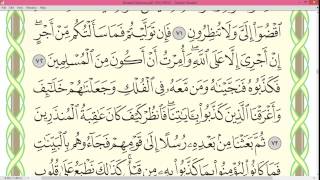 ٱقْضُوٓا۟ إِلَىَّ وَلَا تُنظِرُونِ ٧١ فَإِن تَوَلَّيْتُمْ فَمَا سَأَلْتُكُم مِّنْ أَجْرٍ
إِنْ أَجْرِىَ إِلَّا عَلَى ٱللَّهِ وَأُمِرْتُ أَنْ أَكُونَ مِنَ ٱلْمُسْلِمِينَ ٧٢
فَكَذَّبُوهُ فَنَجَّيْنَٰهُ وَمَن مَّعَهُۥ فِى ٱلْفُلْكِ وَجَعَلْنَٰهُمْ خَلَٰٓئِفَ
وَأَغْرَقْنَا ٱلَّذِينَ كَذَّبُوا۟ بِـَٔايَٰتِنَا فَٱنظُرْ كَيْفَ كَانَ عَٰقِبَةُ ٱلْمُنذَرِينَ
٧٣ ثُمَّ بَعَثْنَا مِنۢ بَعْدِهِۦ رُسُلًا إِلَىٰ قَوْمِهِمْ فَجَآءُوهُم بِٱلْبَيِّنَٰتِ
فَمَا كَانُوا۟ لِيُؤْمِنُوا۟ بِمَا كَذَّبُوا۟ بِهِۦ مِن قَبْلُ كَذَٰلِكَ نَطْبَعُ عَلَىٰ قُلُوبِ